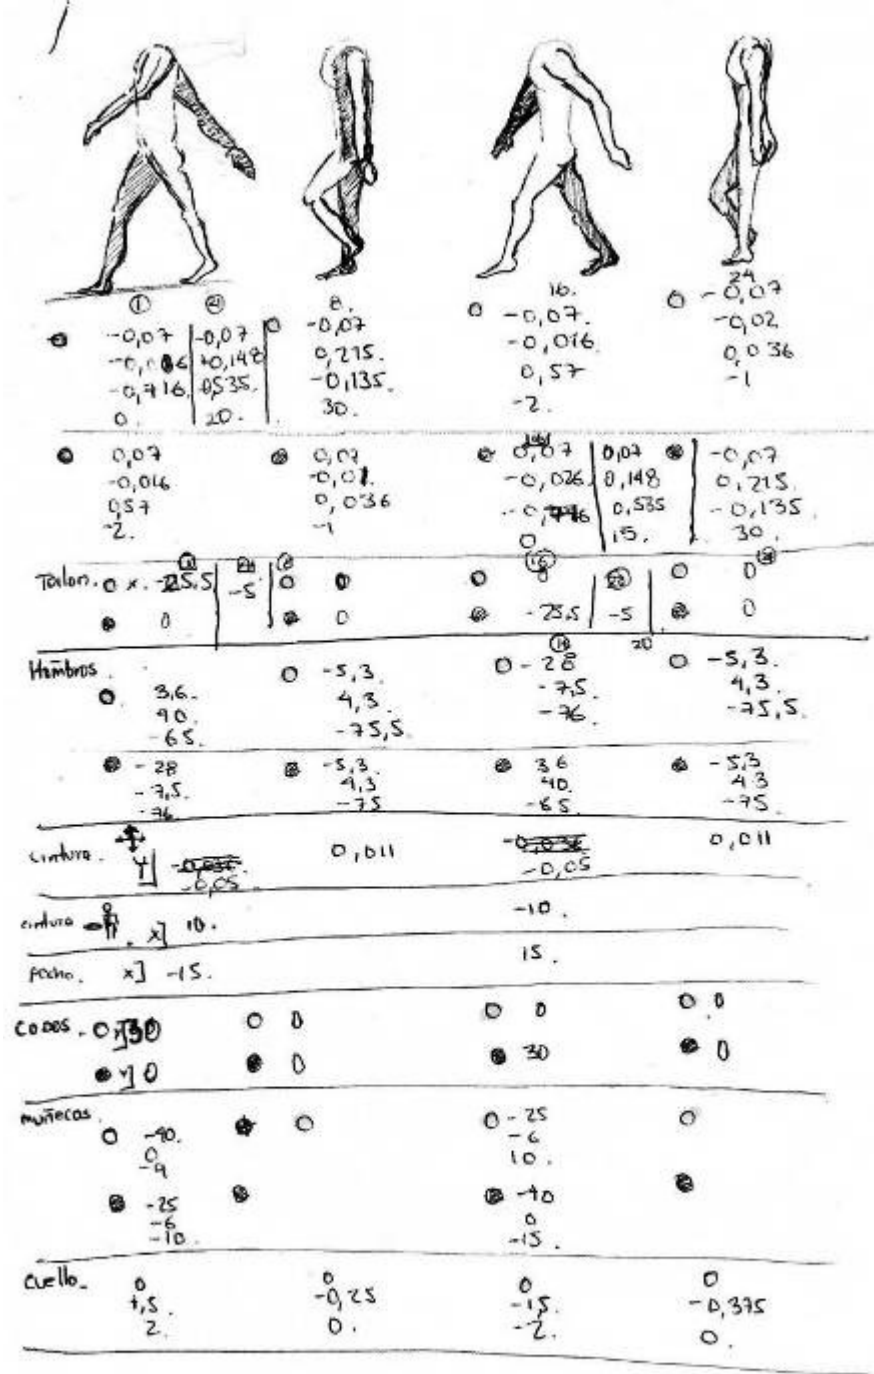 ① ④ 8. 16. 24
-0,07 | -0,07 | -0,07 -0,07. -0,07
+0,148 | 0,215 -0,016. -0,02
0,535. | -0,135. 0,57 0,036
0. | 20. | 30. -2. -1
0,07 0,07 0,07 | 0,07 | -0,07
-0,016 -0,026 | 0,148 | 0,215.
0,57 0,036 0,535 | -0,135.
-2. -1 0 | 15. | 30.
Talon. x. -25,5 | -5 | 0 0 | | 0
0 | | 0 -25,5 | -5 | 0
20
Hombros. -5,3. -28 -5,3.
3,6. 4,3. -7,5. 4,3.
40. -75,5. -76. -75,5.
-65.
-28 -5,3. 36 -5,3
-7,5. 4,3 40. 4,3
-76 -75 -65 -75
cintura. Y] 0,011 0,011
-0,05. -0,05
cintura x] 10. -10.
pecho. x] -15. 15.
CODOS. 30 0 0 0
Y] 0 0 30 0
muñecas.
-40. -25
0 -6
-9 10.
-25 -40
-6 0
-10. -15.
Cuello. 0 0 0 0
-0,25 -1,5. -0,375
2. 0. -2. 0.